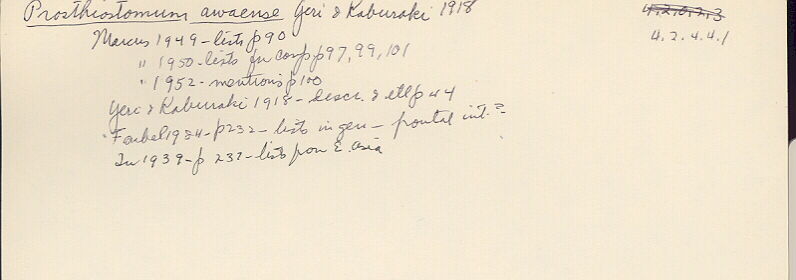 Prosthiostomum awaense Yeri & Kaburaki 1918
4.2.0.2.3
4.2.4.4.1
Marcus 1949 - lists p 90
" 1950 - lists for comp p 97, 99, 101
" 1952 - mentions p 100
Yeri & Kaburaki 1918 - descr. & p 44
1984 - p 232 - lists in gen - frontal int. ?
1939 - p 232 - lists from E. Asia